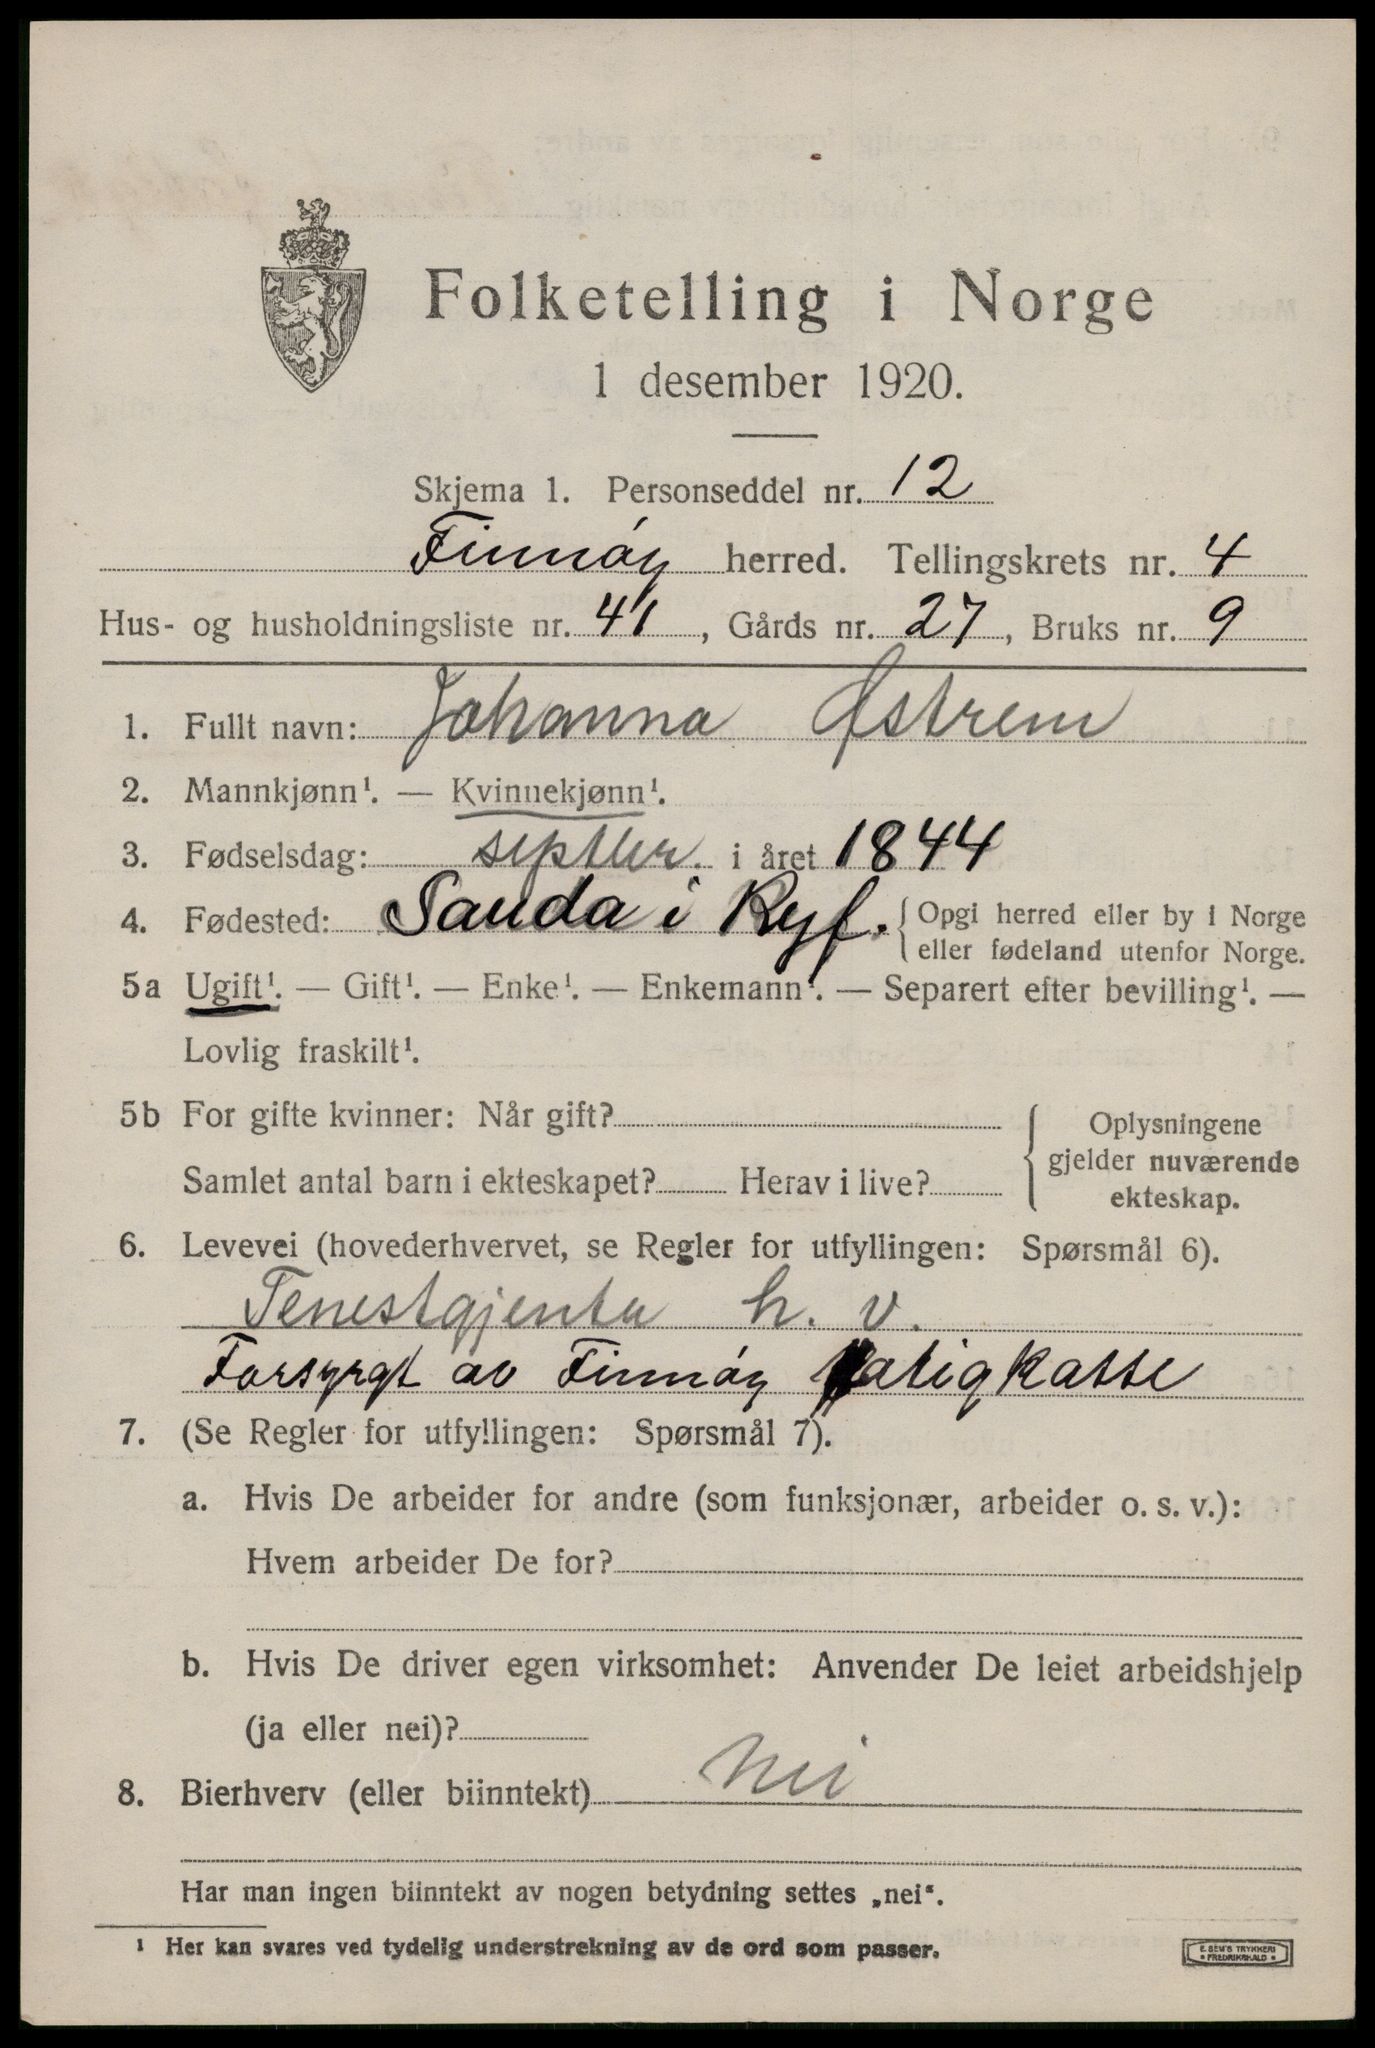 Folketelling i Norge
1 desember 1920.
Skjema 1. Personseddel nr. 12
Finnøy herred. Tellingskrets nr. 4
Hus- og husholdningsliste nr. 41, Gårds nr. 27, Bruks nr. 9
1. Fullt navn: Johanna Østrem
2. Mannkjønn¹. — Kvinnekjønn¹.
3. Fødselsdag: septber. i året 1844
4. Fødested: Sauda i Ryf. { Opgi herred eller by i Norge
eller fødeland utenfor Norge.
5a Ugift¹. — Gift¹. — Enke¹. — Enkemann¹. — Separert efter bevilling¹. —
Lovlig fraskilt¹.
5b For gifte kvinner: Når gift?
Samlet antal barn i ekteskapet? Herav i live?
{ Oplysningene
gjelder nuværende
ekteskap.
6. Levevei (hovederhvervet, se Regler for utfyllingen: Spørsmål 6).
Tenestgjenta h. v.
Forsyrgt av Finnøy fatigkasse
7. (Se Regler for utfyllingen: Spørsmål 7).
a. Hvis De arbeider for andre (som funksjonær, arbeider o. s. v.):
Hvem arbeider De for?
b. Hvis De driver egen virksomhet: Anvender De leiet arbeidshjelp
(ja eller nei)?
8. Bierhverv (eller biinntekt) Nei
Har man ingen biinntekt av nogen betydning settes „nei“.
¹ Her kan svares ved tydelig understrekning av de ord som passer.
E. SEM'S TRYKKERI
• FREDRIKSHALD •